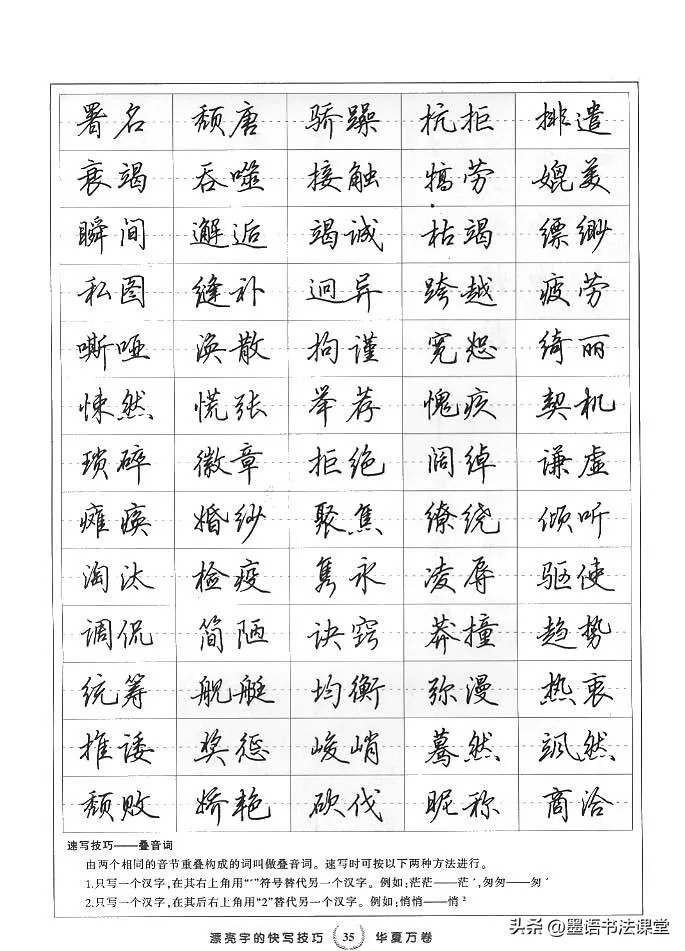 署名 颓唐 骄躁 抗拒 排遣
衰竭 吞噬 接触 犒劳 媲美
瞬间 邂逅 竭诚 枯竭 缥缈
私图 缝补 迥异 跨越 疲劳
嘶哑 涣散 拘谨 宽恕 绮丽
悚然 慌张 举荐 愧疚 契机
琐碎 徽章 拒绝 阔绰 谦虚
瘫痪 婚纱 聚焦 缭绕 倾听
淘汰 检疫 隽永 凌辱 驱使
调侃 简陋 诀窍 莽撞 趋势
统筹 舰艇 均衡 弥漫 热衷
推诿 奖惩 峻峭 蓦然 飒然
颓败 娇艳 砍伐 昵称 商洽
速写技巧——叠音词
由两个相同的音节重叠构成的词叫做叠音词。速写时可按以下两种方法进行。
1.只写一个汉字,在其右上角用“ˊ”符号替代另一个汉字。例如:茫茫——茫ˊ,匆匆——匆ˊ
2.只写一个汉字,在其后右上角用“2”替代另一个汉字。例如:悄悄——悄²
漂亮字的快写技巧 35 华夏万卷
头条 @墨语书法课堂